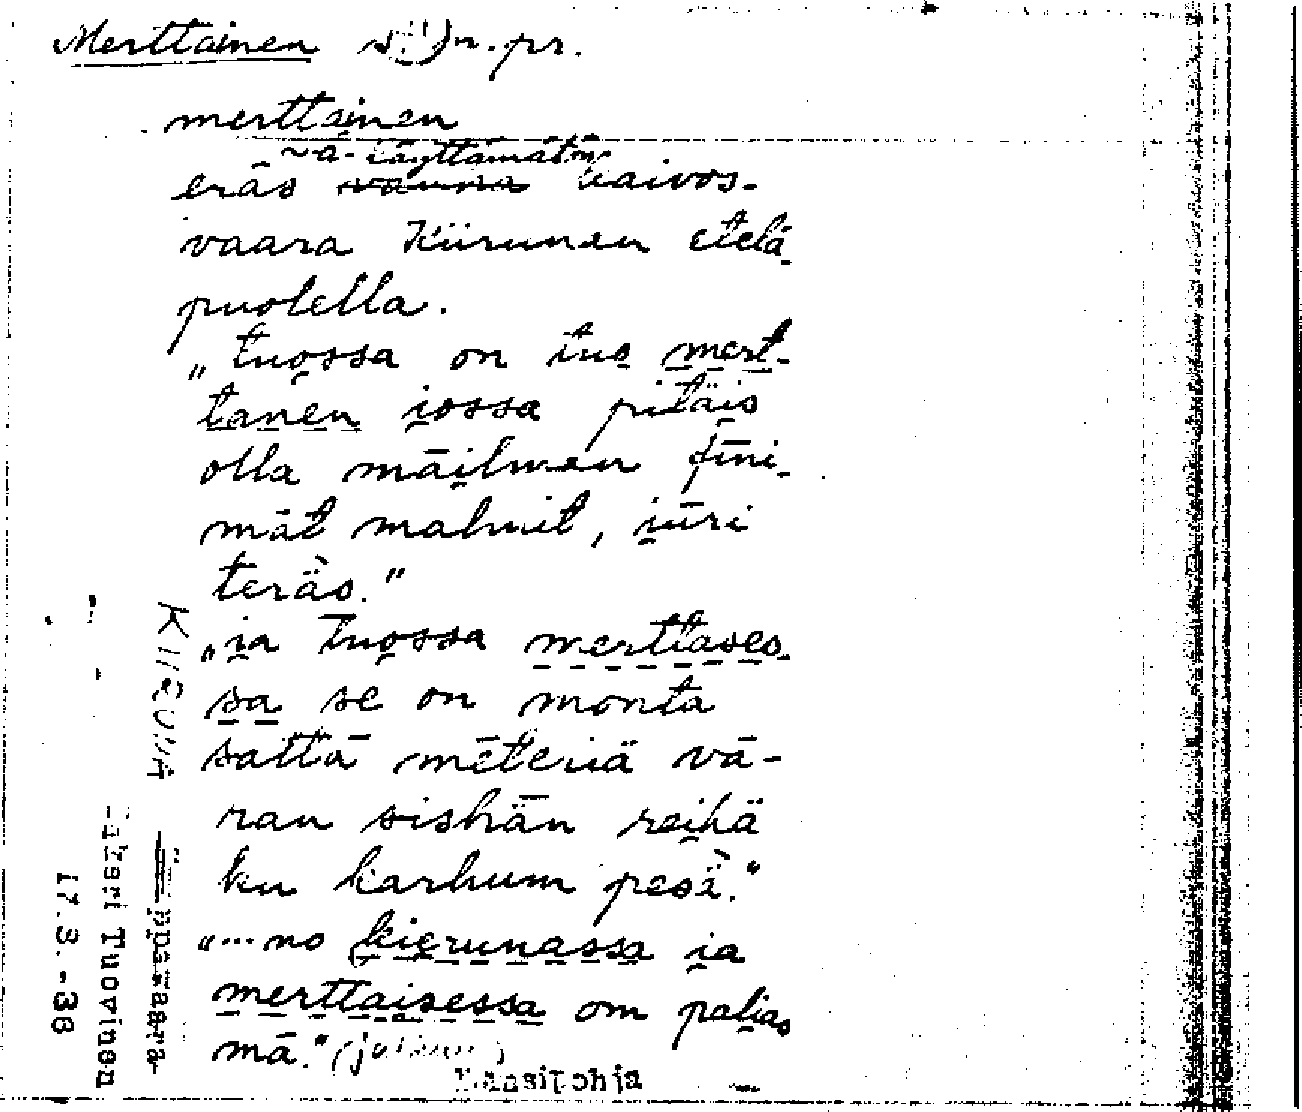 Merttainen s. n. pr.
merttainen
~a- käyttämätön
eräs kaivos-
vaara Kiirunan etelä-
puolella.
„tuossa on tuo mert-
tanen i̯ossa pitäis
olla māilman fīni-
mät malmit, i̯ūri
teräs."
„i̯a tuossa merttases-
sa se on monta
sattā mēteriä vā-
ran sishǟn reihä
ku karhum pesä."
„...no kierunassa i̯a
merttaisessa om pali̯as
mā."
Länsipohja
KIIRUNA
Jukkasjärvi
Tuovinen
17.3.-38